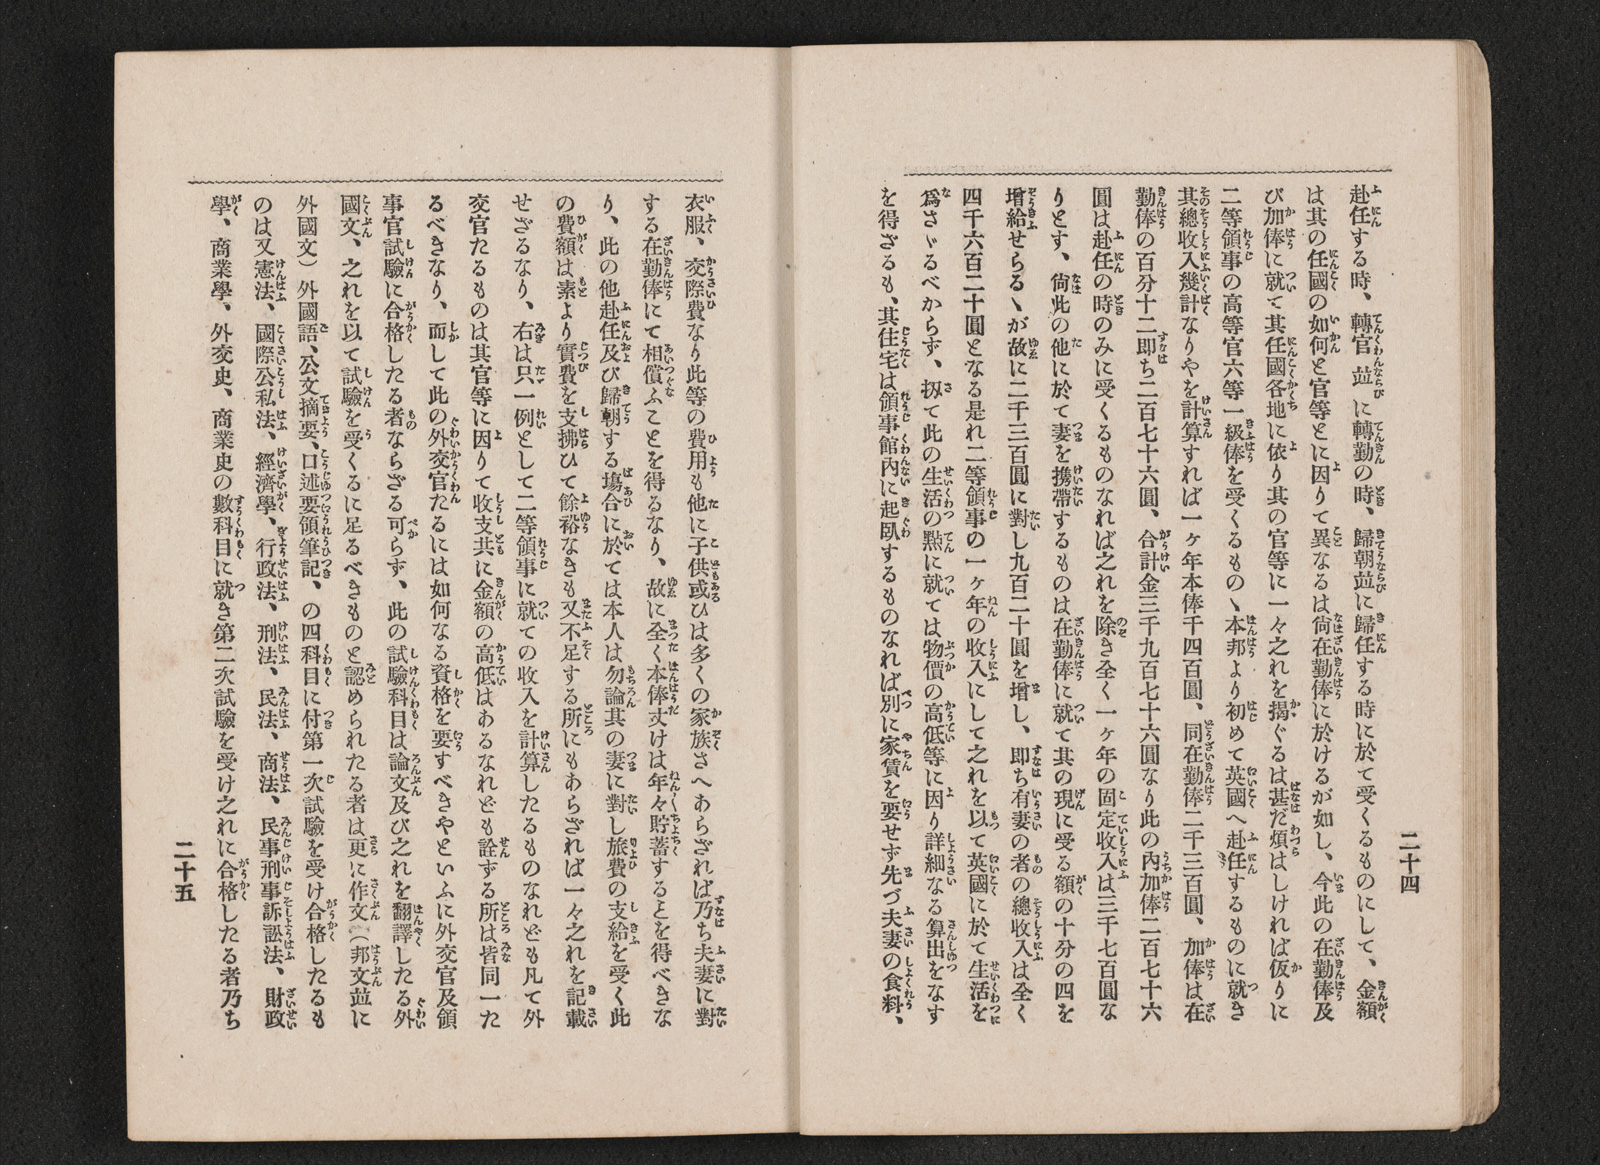 赴任する時、轉官並に轉勤の時、歸朝並に歸任する時に於て受くるものにして、金額
は其の任國の如何と官等とに因りて異なるは尙在勤俸に於けるが如し、今此の在勤俸及
び加俸に就て其任國各地に依り其の官等に一々之れを揭ぐるは甚だ煩はしければ仮りに
二等領事の高等官六等一級俸を受くるものヽ本邦より初めて英國へ赴任するものに就き
其總收入幾計なりやを計算すれば一ヶ年本俸千四百圓、同在勤俸二千三百圓、加俸は在
勤俸の百分十二即ち二百七十六圓、合計金三千九百七十六圓なり此の內加俸二百七十六
圓は赴任の時のみに受くるものなれば之れを除き全く一ヶ年の固定收入は三千七百圓な
りとす、尙此の他に於て妻を携帶するものは在勤俸に就て其の現に受る額の十分の四を
增給せらるヽが故に二千三百圓に對し九百二十圓を增し、即ち有妻の者の總收入は全く
四千六百二十圓となる是れ二等領事の一ヶ年の收入にして之れを以て英國に於て生活を
爲さゞるべからず、扨て此の生活の㸃に就ては物價の高低等に因り詳細なる算出をなす
を得ざるも、其住宅は領事館內に起臥するものなれば別に家賃を要せず先づ夫妻の食料、
二十四
衣服、交際費なり此等の費用も他に子供或ひは多くの家族さへあらざれば乃ち夫妻に對
する在勤俸にて相償ふことを得るなり、故に全く本俸丈けは年々貯蓄するとを得べきな
り、此の他赴任及び歸朝する塲合に於ては本人は勿論其の妻に對し旅費の支給を受く此
の費額は素より實費を支拂ひて餘裕なきも又不足する所にもあらざれば一々之れを記載
せざるなり、右は只一例として二等領事に就ての收入を計算したるものなれども凡て外
交官たるものは其官等に因りて收支共に金額の高低はあるなれども詮ずる所は皆同一た
るべきなり、而して此の外交官たるには如何なる資格を要すべきやといふに外交官及領
事官試驗に合格したる者ならざる可らず、此の試驗科目は論文及び之れを翻譯したる外
國文、之れを以て試驗を受くるに足るべきものと認められたる者は更に作文（邦文並に
外國文）外國語、公文摘要、口述要領筆記、の四科目に付第一次試驗を受け合格したるも
のは又憲法、國際公私法、經濟學、行政法、刑法、民法、商法、民事刑事訴訟法、財政
學、商業學、外交史、商業史の數科目に就き第二次試驗を受け之れに合格したる者乃ち
二十五